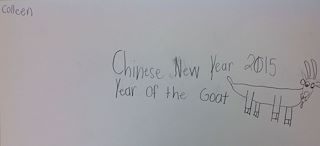 Colleen
Chinese New Year 2015
Year of the Goat